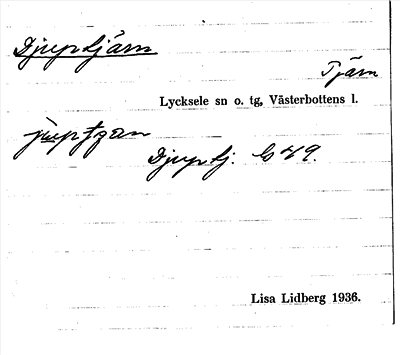 Djuptjärn
Tjärn
Lycksele sn o. tg, Västerbottens l.
Djuptj. 49.
Lisa Lidberg 1936.